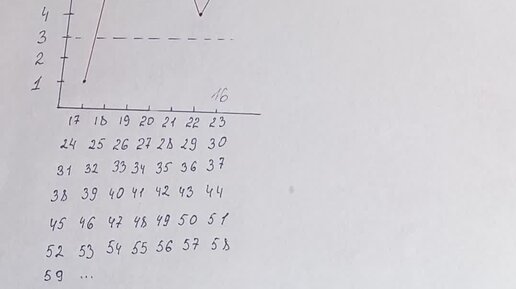 4
3
2
1
16
17 18 19 20 21 22 23
24 25 26 27 28 29 30
31 32 33 34 35 36 37
38 39 40 41 42 43 44
45 46 47 48 49 50 51
52 53 54 55 56 57 58
59 ...